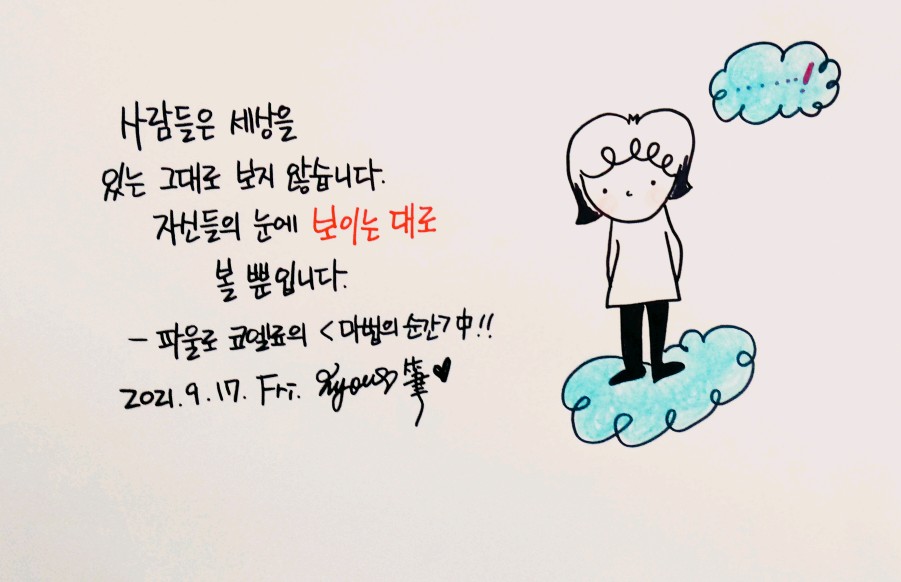 사람들은 세상을
있는 그대로 보지 않습니다.
자신들의 눈에 보이는 대로
볼 뿐입니다.
- 파울로 코엘료의 <마법의 순간> 中!!
2021.9.17. Fri. 筆♥
......!